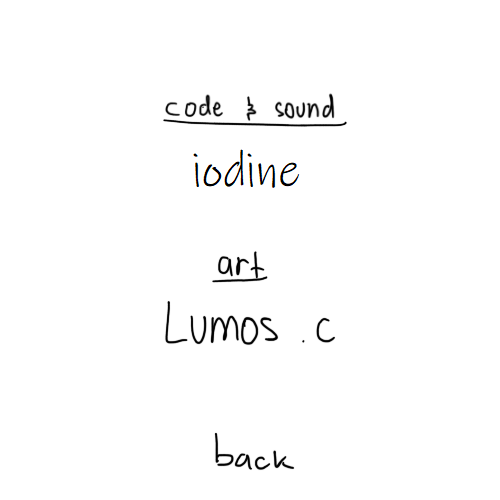 code & sound
iodine
art
Lumos .c
back